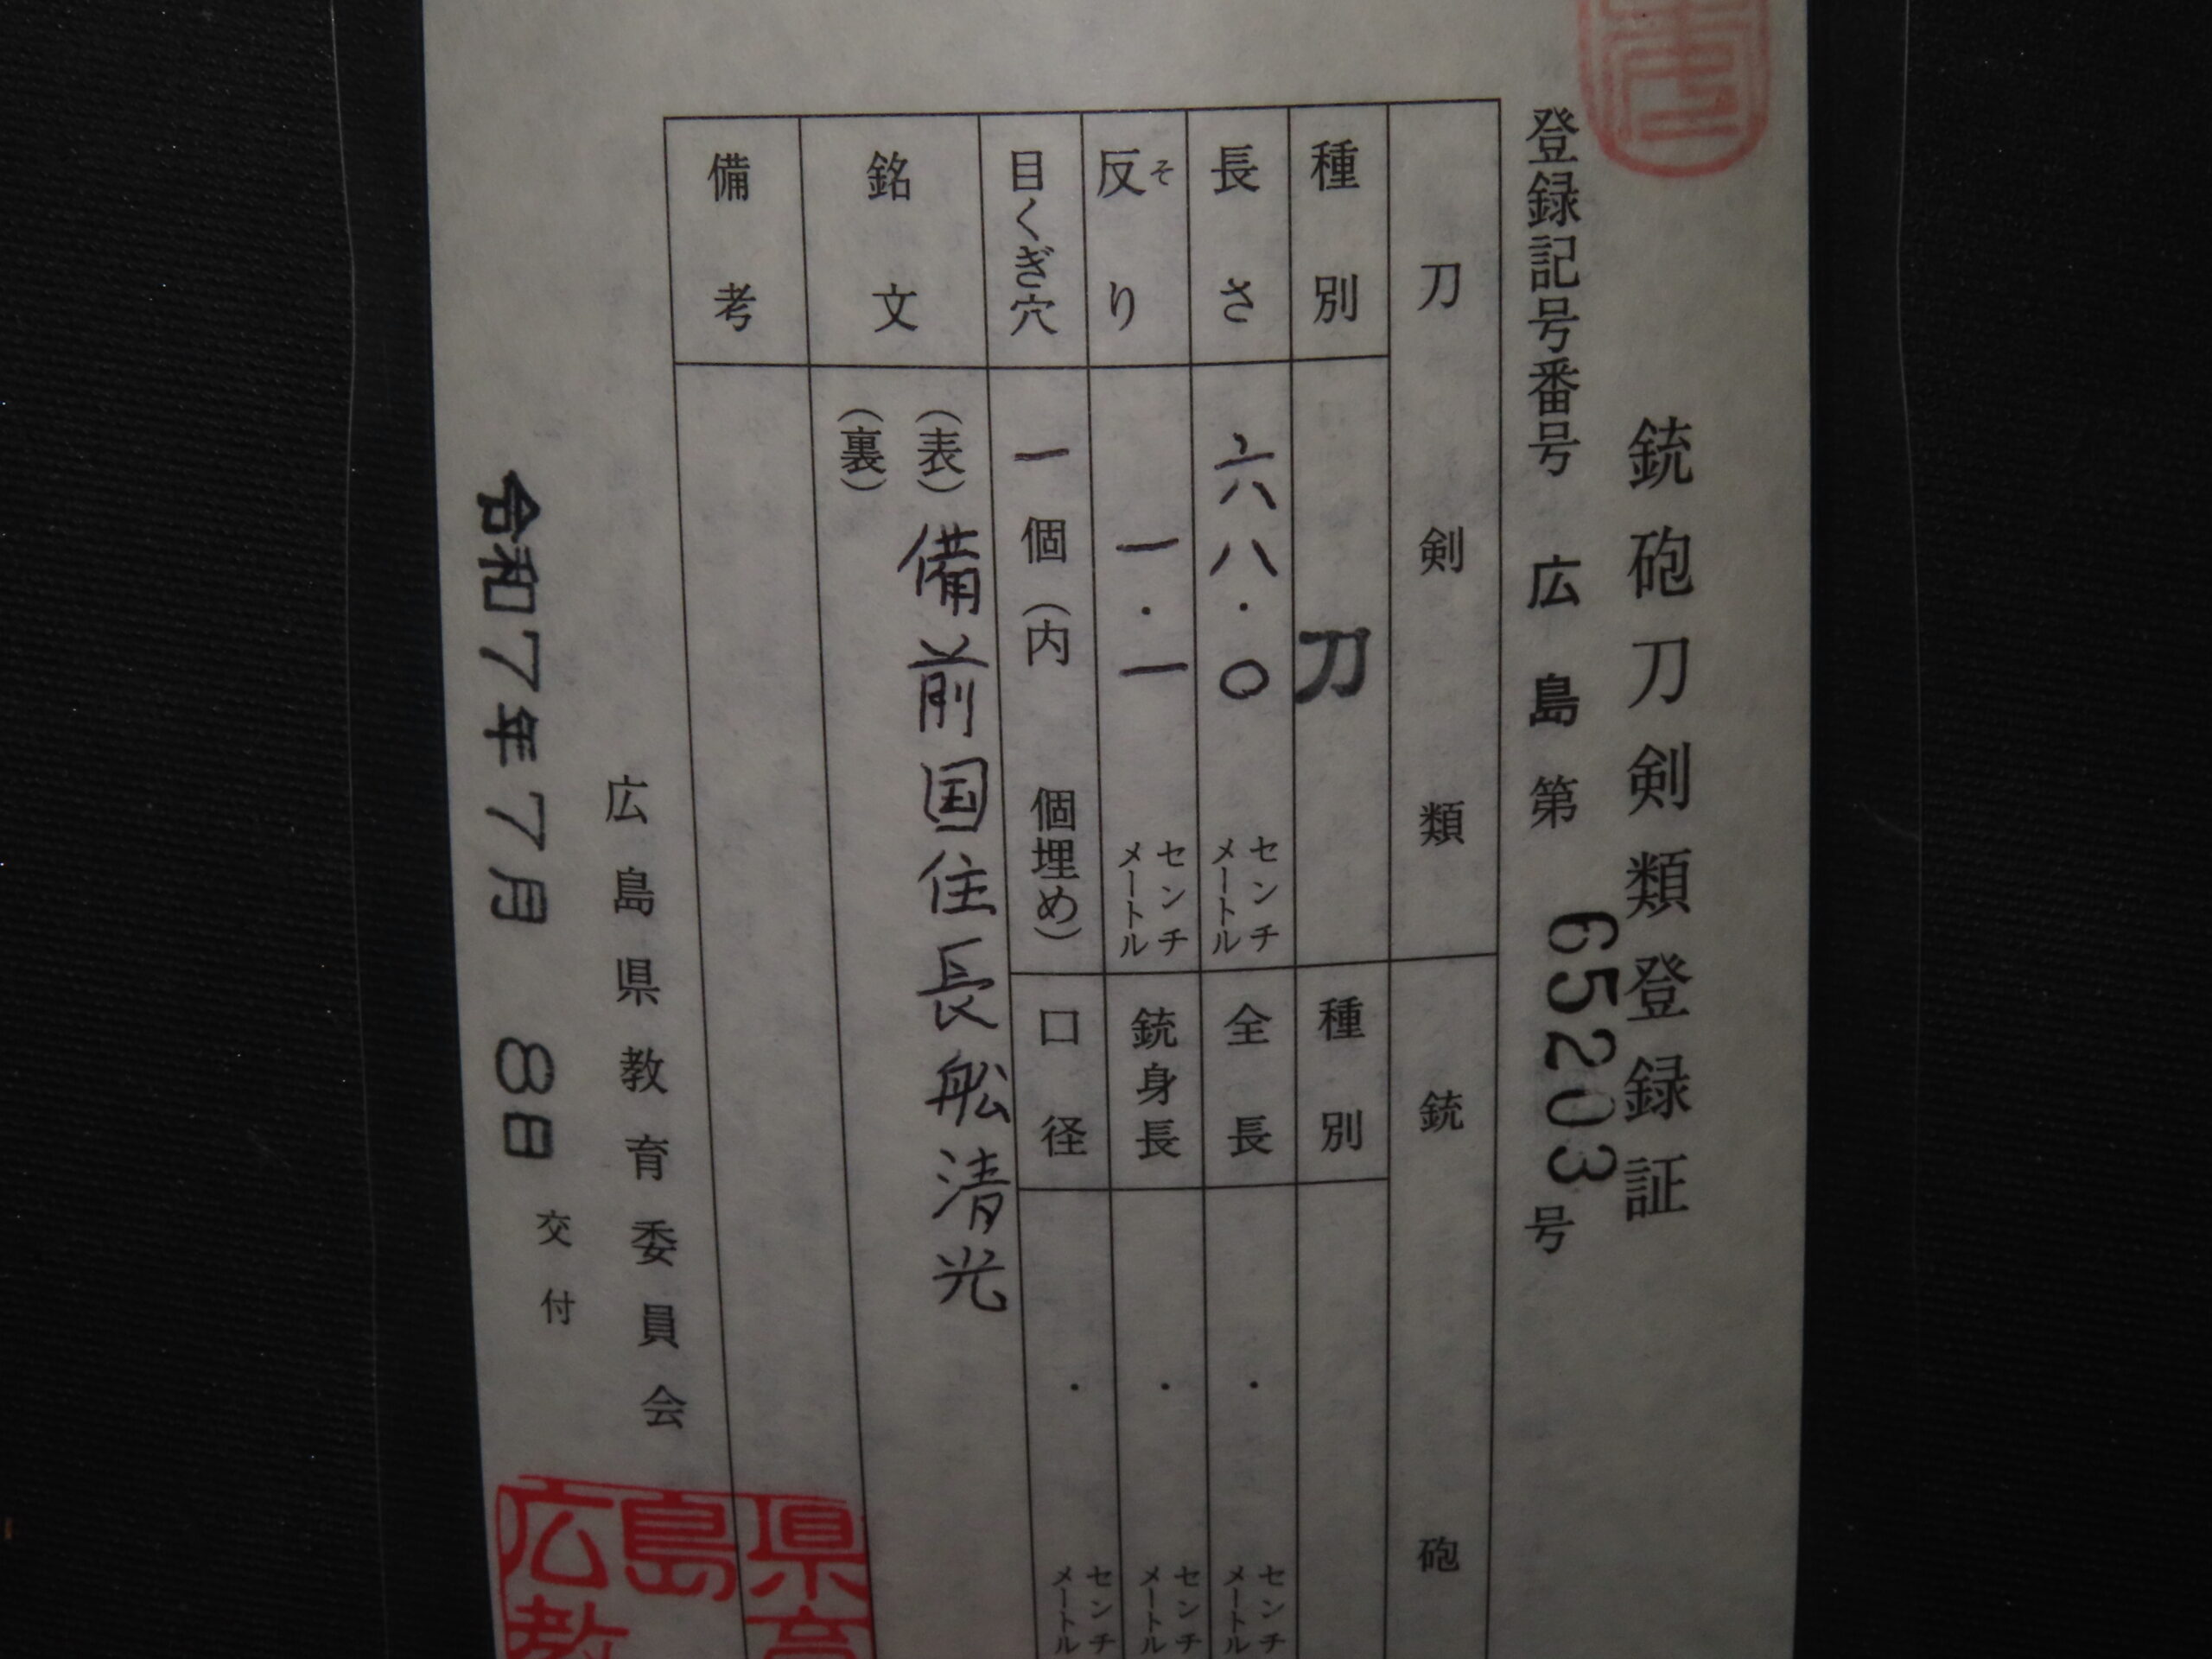 銃砲刀剣類登録証
登録記号番号 広島第 65203号
刀剣類
種別 刀
長さ 六八・〇 センチメートル
反り そ 一・一 センチメートル
目くぎ穴 一個(内 個埋め)
銘文 (表)備前国住長舩清光
(裏)
備考
銃砲
種別
全長 ・ センチメートル
銃身長 ・ センチメートル
口径 ・ センチメートル
広島県教育委員会
令和7年7月 8日 交付
広島県
教育